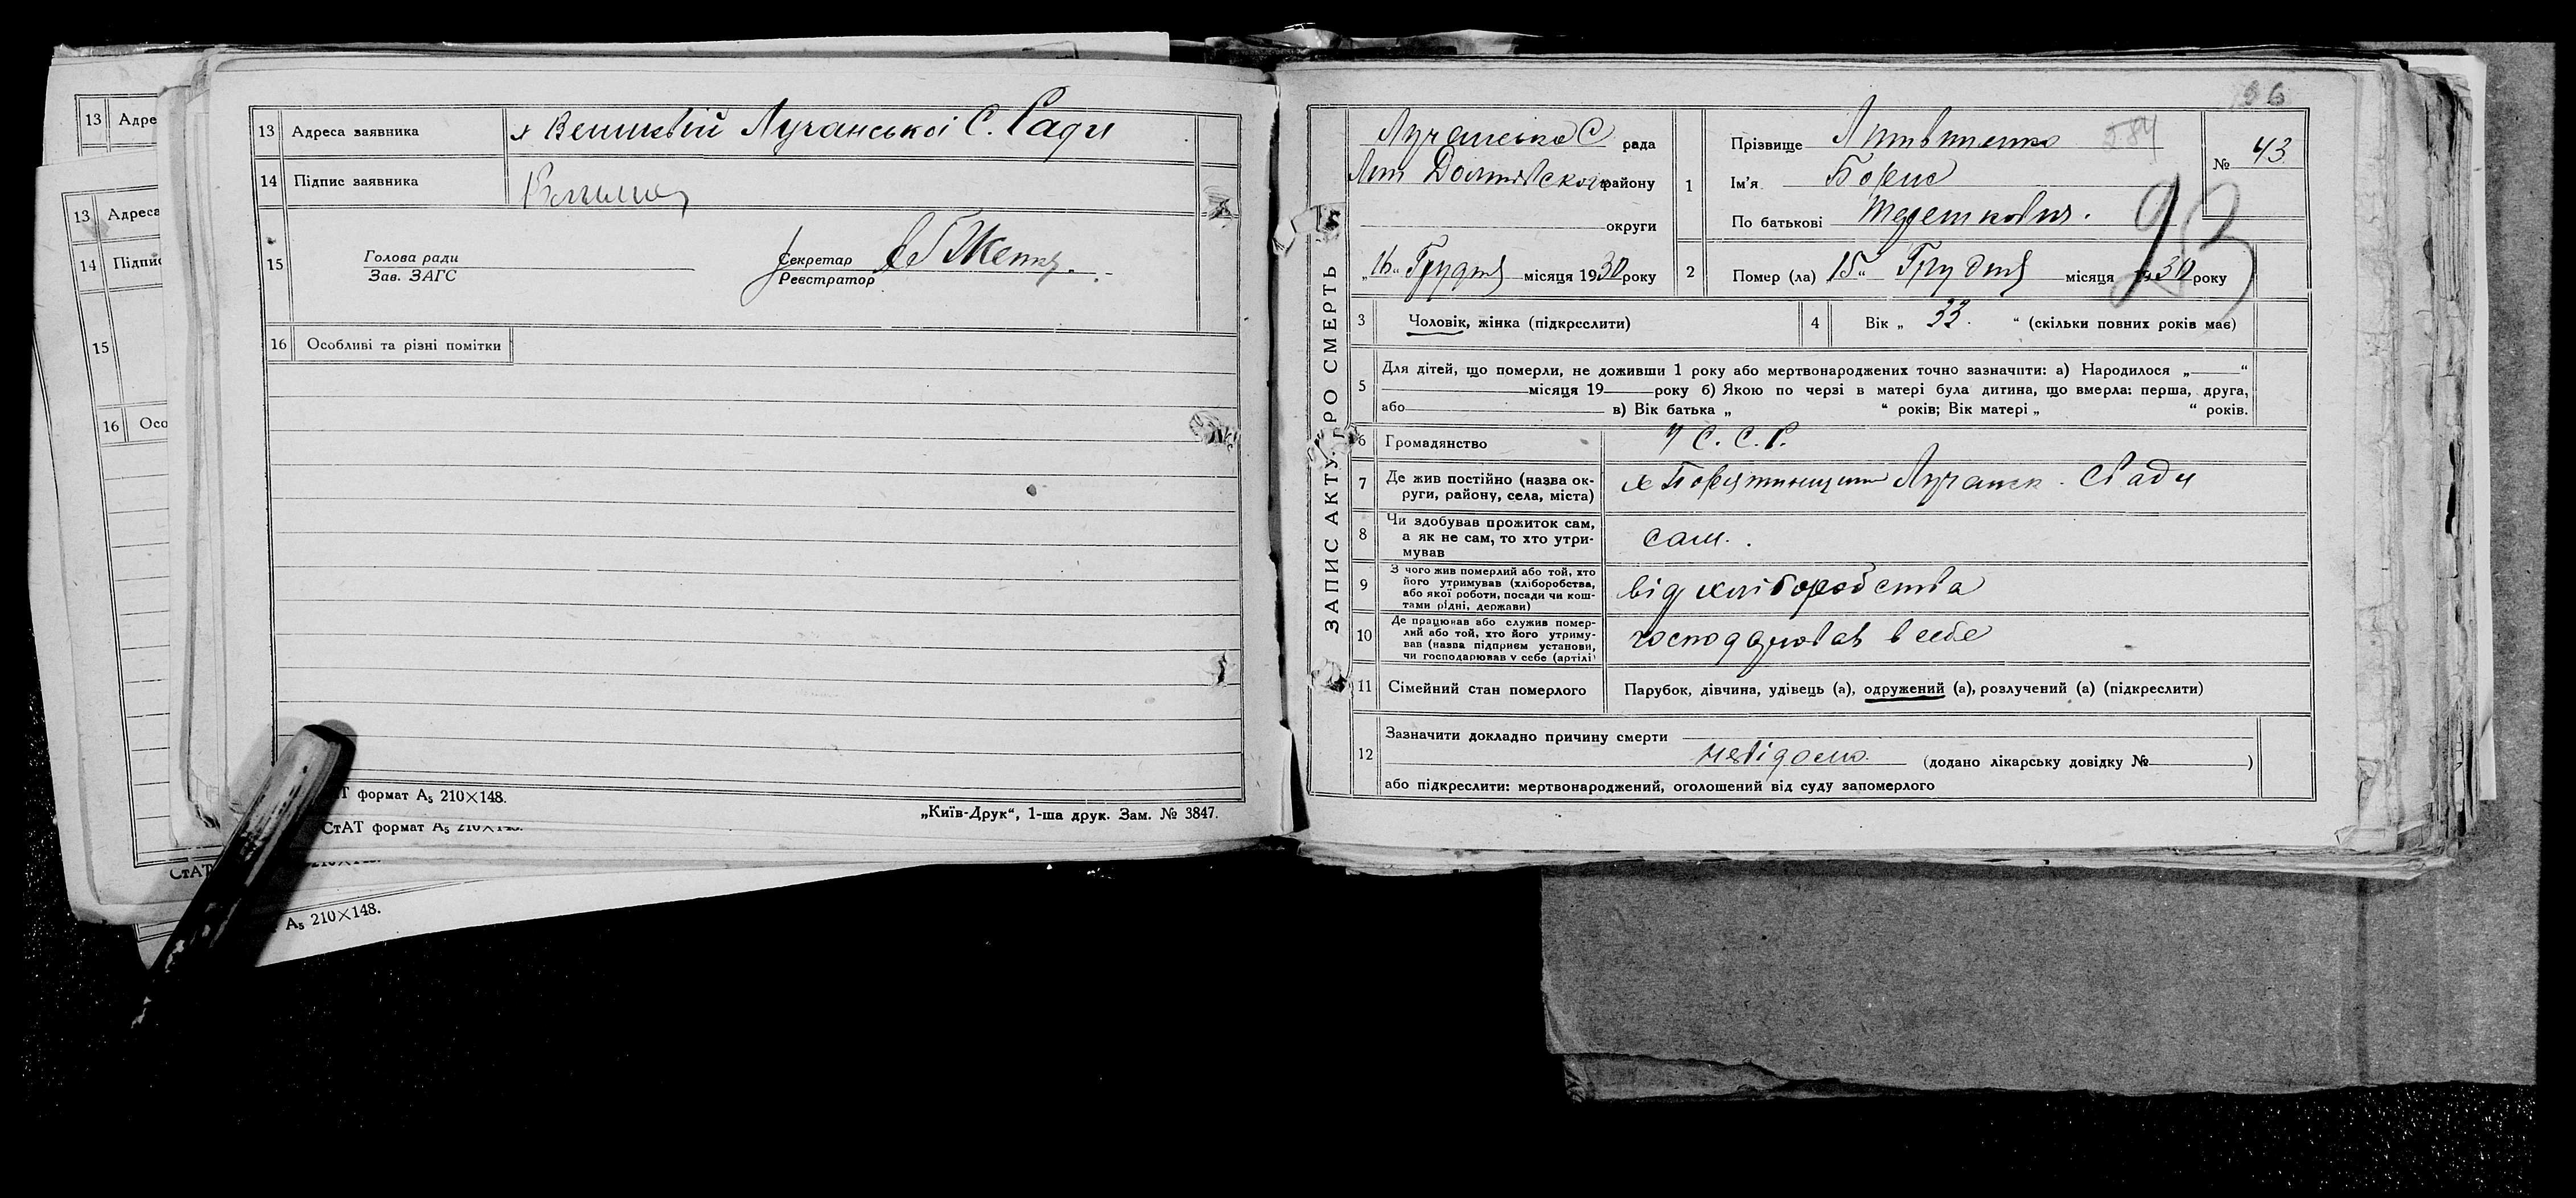 13 Адре
13 Адреса
14 Підпис
15
15
16 Осо
13 Адреса заявника Лучанської С. Ради
14 Підпис заявника
15 Голова ради
Зав. ЗАГС
Секретар
Реєстратор
16 Особливі та різні помітки
Т формат А₅ 210×148.
„Київ-Друк“, 1-ша друк. Зам. № 3847.
СтАТ формат А₅ 210×148.
СтАТ
210×148.
А₅ 210×148.
96
584
93
ЗАПИС АКТУ ПРО СМЕРТЬ
Лучанська С рада
району
округи
„16“ Грудня місяця 1930 року
1 Прізвище Литвиненко
Ім'я Борис
По батькові
№ 43
2 Помер (ла) 15“ Грудня місяця 1930 року
3 Чоловік, жінка (підкреслити)
4 Вік „ 33. “ (скільки повних років має)
5 Для дітей, що померли, не доживши 1 року або мертвонароджених точно зазначити: а) Народилося „ “
місяця 19 року б) Якою по черзі в матері була дитина, що вмерла: перша, друга,
або в) Вік батька „ “ років; Вік матері „ “ років.
6 Громадянство У С. С. Р.
7 Де жив постійно (назва ок-
руги, району, села, міста) Лучанск. С Ради
8 Чи здобував прожиток сам,
а як не сам, то хто утри-
мував сам.
9 З чого жив померлий або той, хто
його утримував (хліборобства,
або якої роботи, посади чи кош-
тами рідні, держави) від хліборобства
10 Де працював або служив помер-
лий або той, хто його утриму-
вав (назва підприєм установи,
чи господарював у себе (артілі) господарював в себе
11 Сімейний стан померлого Парубок, дівчина, удівець (а), одружений (а), розлучений (а) (підкреслити)
12 Зазначити докладно причину смерти
невідомо. (додано лікарську довідку № )
або підкреслити: мертвонароджений, оголошений від суду запомерлого